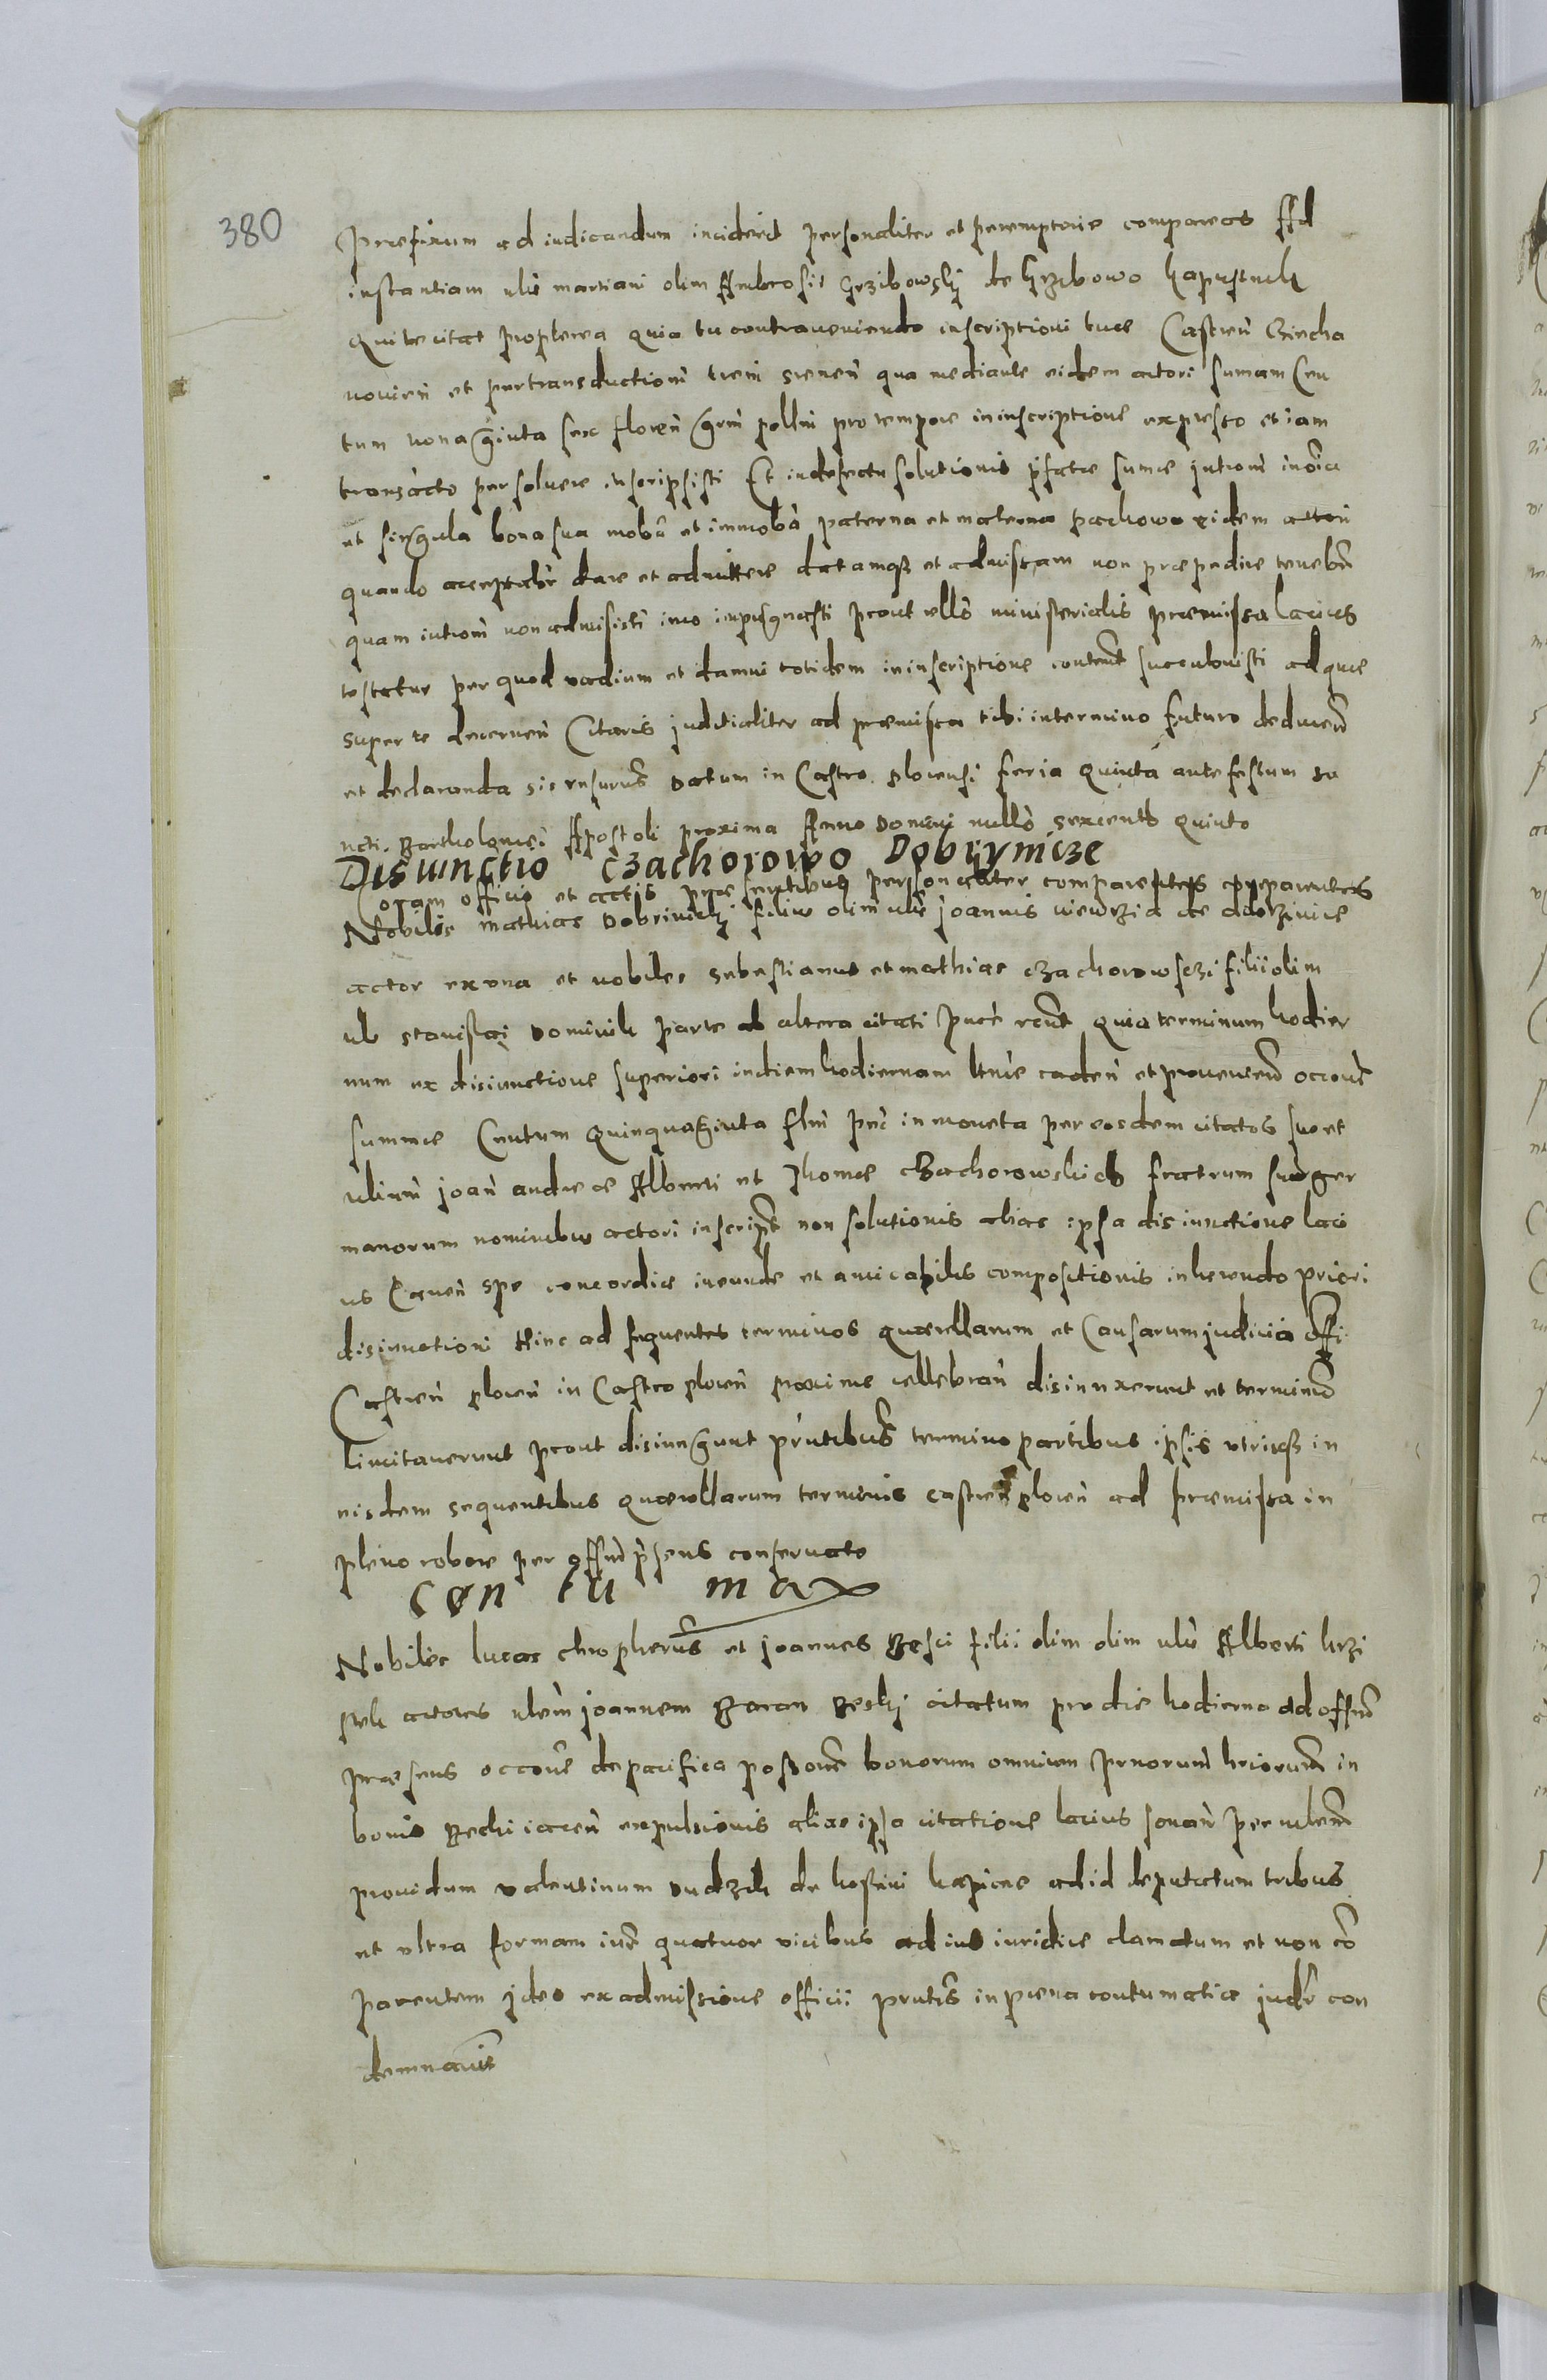 380
Præfixum ad iudicandum inciderit personaliter et peremptorie compareas Ad
instantiam nlis martiani olim Ambrosii Grzibowskj de Grzibowo kapustnik
Qui te citat propterea quia tu contraveniendo inscriptioni tuæ Castren Ciecha
novien et per transductionem trem sremen qua mediante eidem actori sumam Cen
tum nonaginta sex floren grm pollni pro tempore in inscriptione expresso et iam
transacto persolvere inscripsisti Et in defectu solutionis pfatæ sumæ introm in oia
et singula bona sua mobia et immobia paterna et materna pachowo eidem actori
quando acceptabr dare et admittere datamq et admissam non præpedire tenebis
quam introm non admisisti imo impugnasti prout rello ministerialis præmissa lacius
testatur per quod vadium et damni totidem in inscriptione content succubuisti ad quæ
super te decernen Citaris juditialiter ad præmissa tibi in termino futuro deducend
et declaranda sis rnsurus Datum in Castro plocensi feria quinta ante festum sa
ncti Bartholomei Apostoli proxima Anno Domini millo sexcento quinto
Disiunctio Czachorowo Dobrynicze
Coram officio et actis præsentibus personaliter comparentes
Nobilis mathias Dobrinickj filius olim nlis joannis
actor ex una et nobiles sebastianus et mathias czachorowsczi filii olim
nlis stanislai Dominik parte ab altera citati quia terminum hodier
num ex disiunctione superiori in diem hodiernam ltnie caden et provenien occone
summæ Centum quinquaginta flni pnc in moneta per eosdem citatos suo et
nlium joan andreæ Alberti et Thomæ czachorowskich fratrum suor ger
manorum nominibus actori inscript non solutionis alias ipsa disiunctione laci
us Canen spe concordiæ ineundæ et amicabilis compositionis inherendo priori
disiunctioni hinc ad sequentes terminos quærellarum et Causarum judicia offi
Castren plocen in Castro plocen proxime cellebran disiunxerunt et terminum
limitaverunt prout disiungunt pntibus termino partibus ipsis utrisq in
eisdem sequentibus quærellarum terminis castren plocen ad præmissa in
pleno robore per offm psens conservato
Con tu max
Nobiles lucas chropherus et joannes Besci filii olim olim nlis Alberti krzi
stek actores nlem joannem Baran Beskj citatum pro die hodierna ad offm
præsens occone de pacifica possone bonorum omnium pnorum hriorum in
bonis Beckj iacen expulsionis alias ipsa citatione lacius sonan per
providum valentinum de ad id deputatum tribus
et ultra formam iuris quatuor vicibus ad ius iuridice clamatum et non co
parentem jdeo ex admissione officii pntis in pæna contumatiæ judr con
demnavit